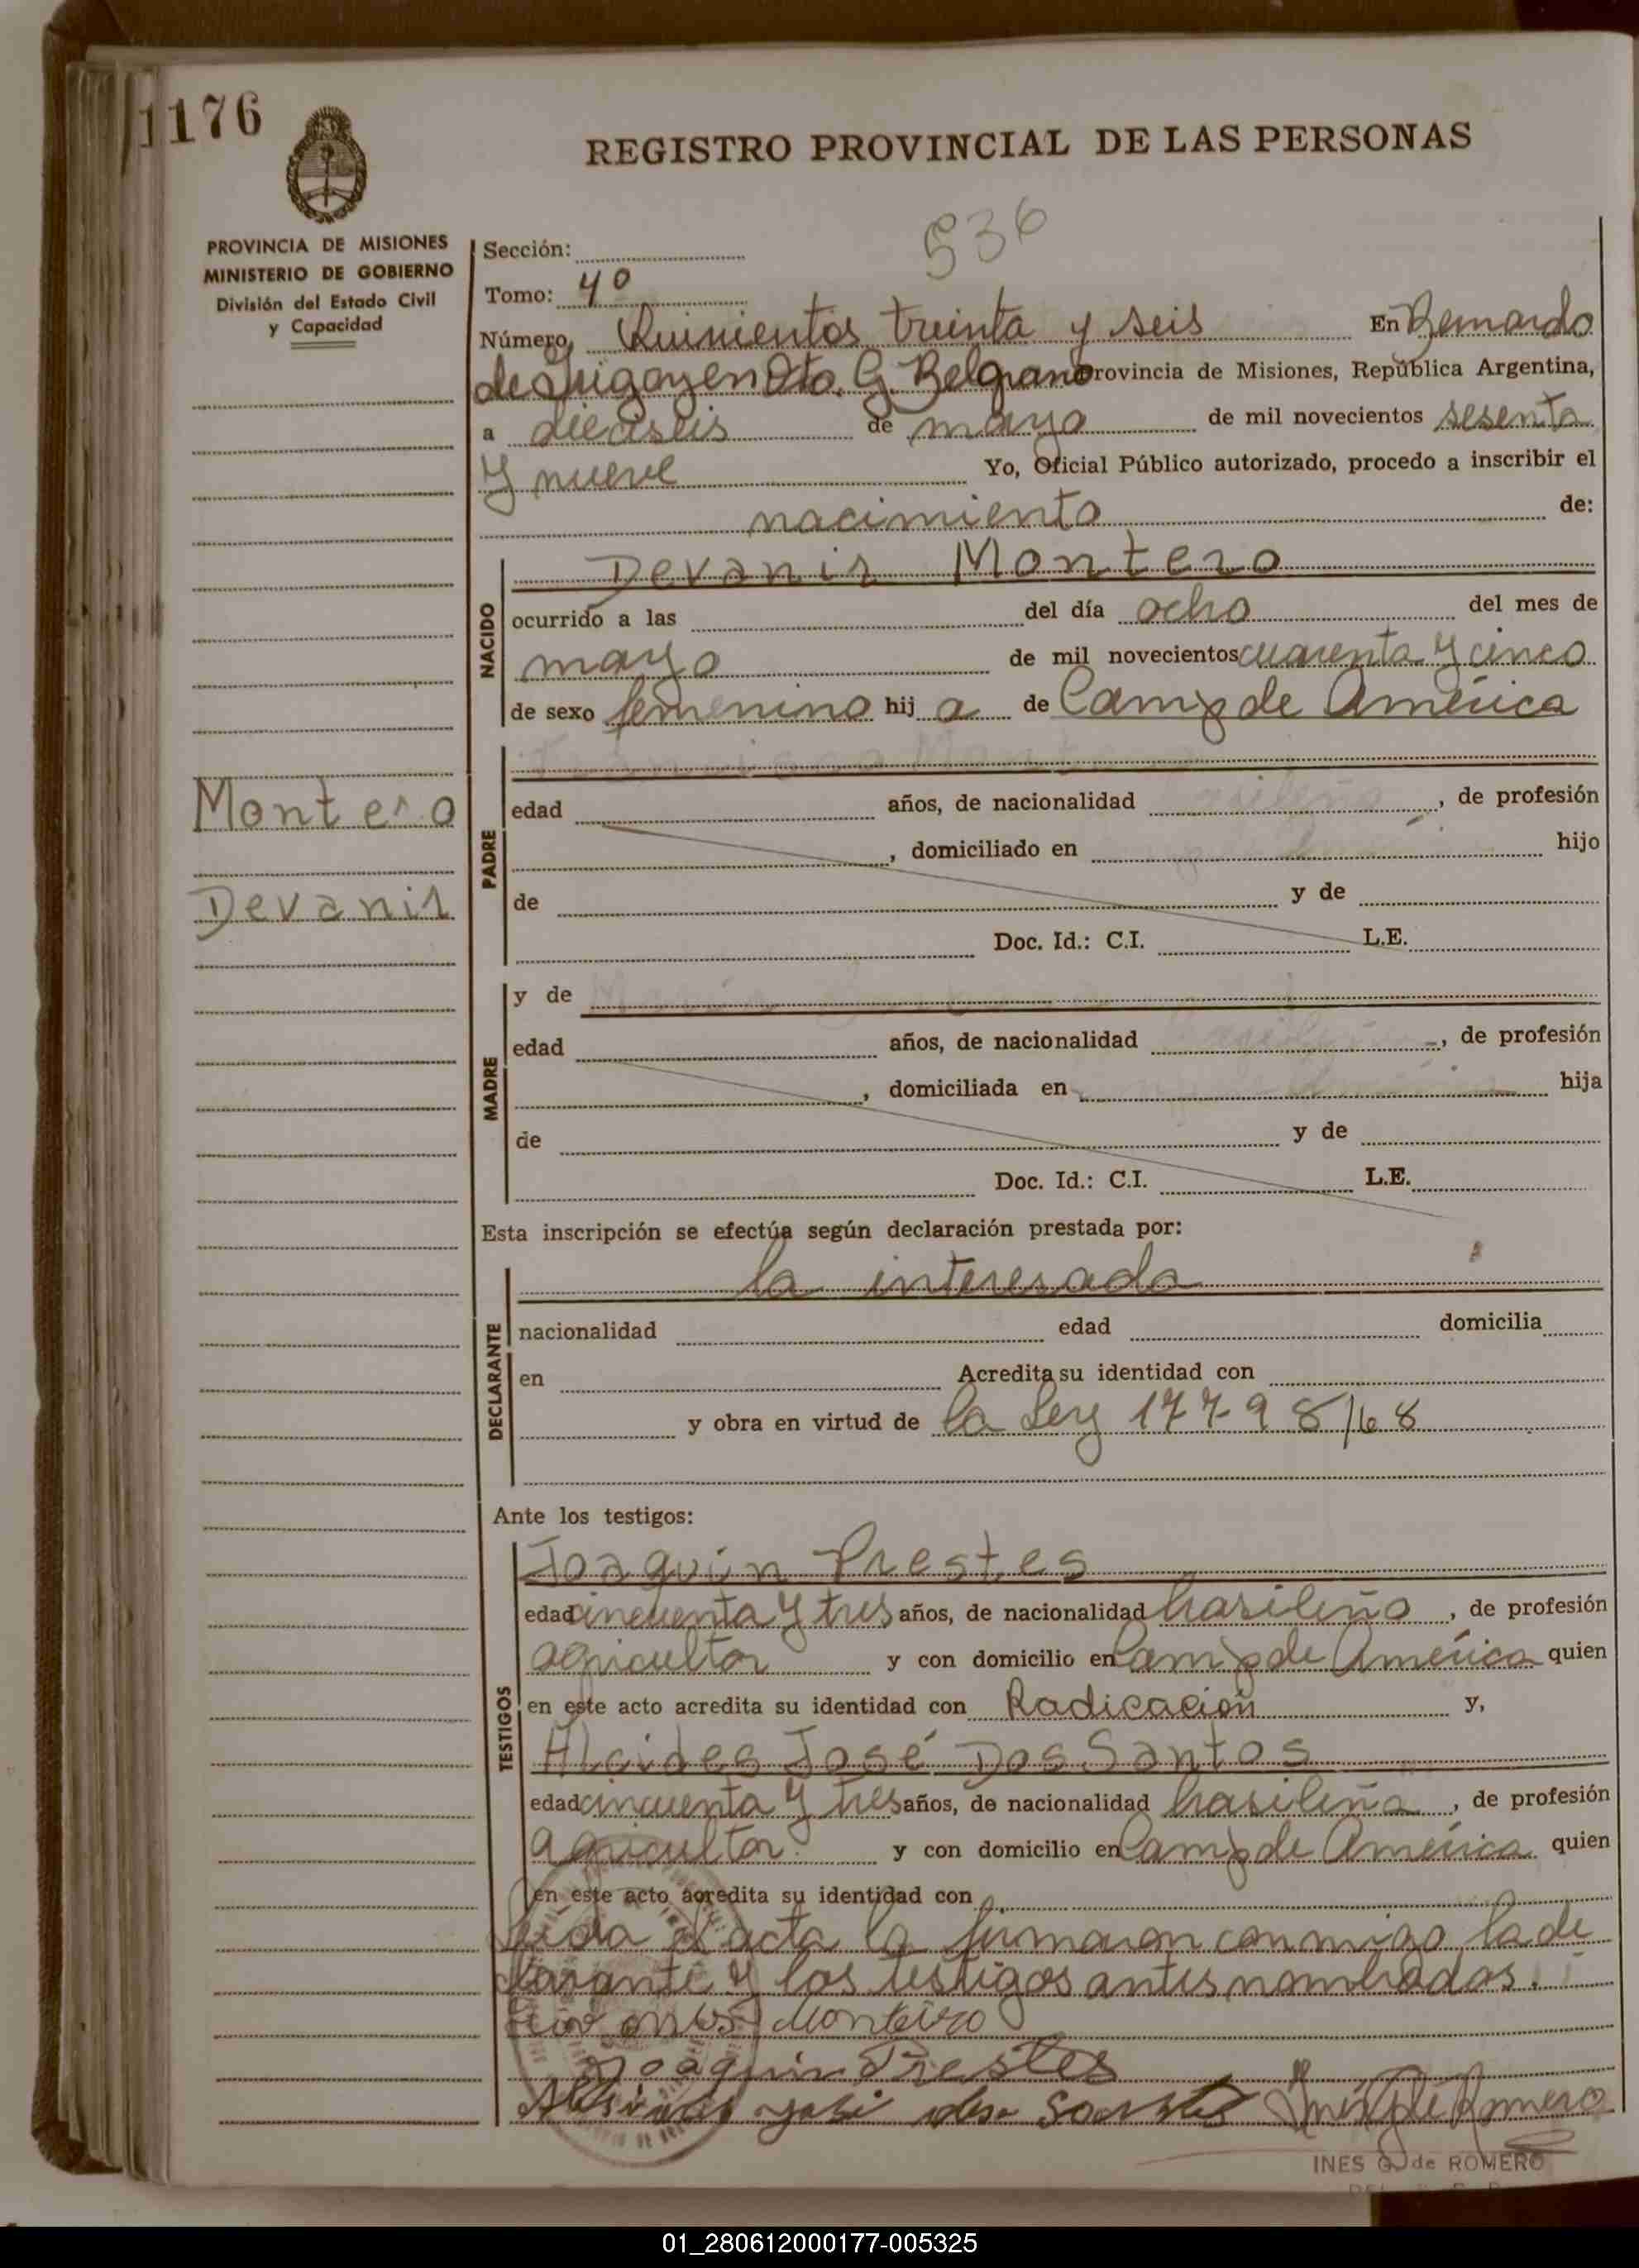 1176
REGISTRO PROVINCIAL DE LAS PERSONAS
536
PROVINCIA DE MISIONES
MINISTERIO DE GOBIERNO
División del Estado Civil
y Capacidad
Sección:
Tomo: 4º
Número Quinientos treinta y seis En Bernardo
de Irigoyen Dto. G. Belgrano Provincia de Misiones, República Argentina,
a dieciseis de mayo de mil novecientos sesenta
y nueve Yo, Oficial Público autorizado, procedo a inscribir el
nacimiento de:
NACIDO
Devanir Montero
ocurrido a las del día ocho del mes de
mayo de mil novecientos cuarenta y cinco
de sexo femenino hij a de Camp de América
Montero
Devanir
PADRE
edad años, de nacionalidad , de profesión
, domiciliado en hijo
de y de
Doc. Id.: C.I. L.E.
MADRE
y de
edad años, de nacionalidad , de profesión
, domiciliada en hija
de y de
Doc. Id.: C.I. L.E.
Esta inscripción se efectúa según declaración prestada por:
DECLARANTE
la interesada
nacionalidad edad domicilia
en Acredita su identidad con
y obra en virtud de la Ley 17798/68
Ante los testigos:
TESTIGOS
Joaquin Prestes
edad cincuenta y tres años, de nacionalidad brasileño , de profesión
agricultor y con domicilio en Camp de América quien
en este acto acredita su identidad con Radicación y,
Alcides José Dos Santos
edad cincuenta y tres años, de nacionalidad brasileña , de profesión
agricultor y con domicilio en Camp de América quien
en este acto acredita su identidad con
Leída el acta la firmaron conmigo la de
clarante y los testigos antes nombrados.
Monteiro
Joaquin Prestes
José dos Santos
INES G. de ROMERO
01_280612000177-005325